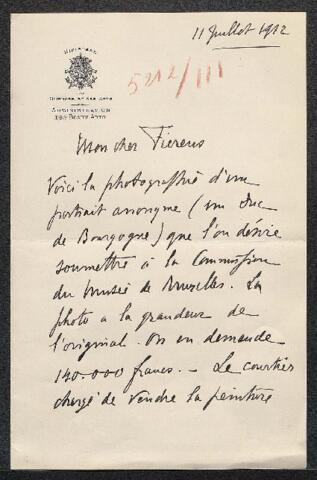 11 Juillet 1912
MINISTÈRE
DES
SCIENCES ET DES ARTS
ADMINISTRATION
DES BEAUX-ARTS
5212/III
Mon cher Fierens
Voici la photographie d'un
portrait anonyme (un duc
de Bourgogne) que l'on désire
soumettre à la Commission
du Musée de Bruxelles. La
photo a la grandeur de
l'original. On en demande
140.000 francs. — Le courtier
chargé de vendre la peinture